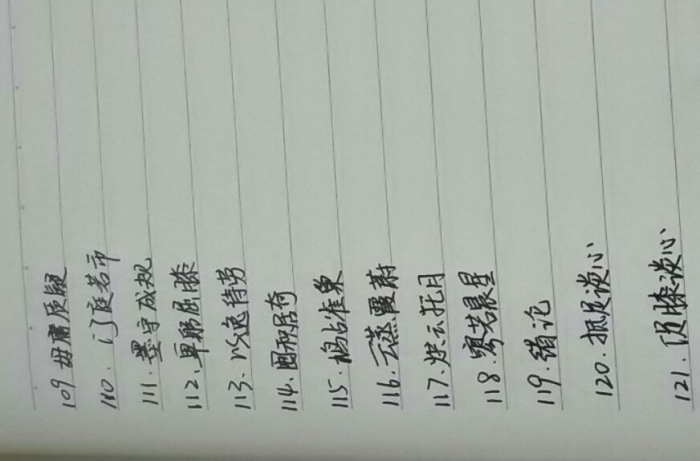 109 毋庸质疑
110、门庭若市
111. 墨守成规
112. 卑躬屈膝
113、以逸待劳
114、囤积居奇
115、鸠占雀巢
116、云蒸霞蔚
117、烘云托月
118、寥若晨星
119. 错讹
120. 抵足谈心
121、促膝谈心